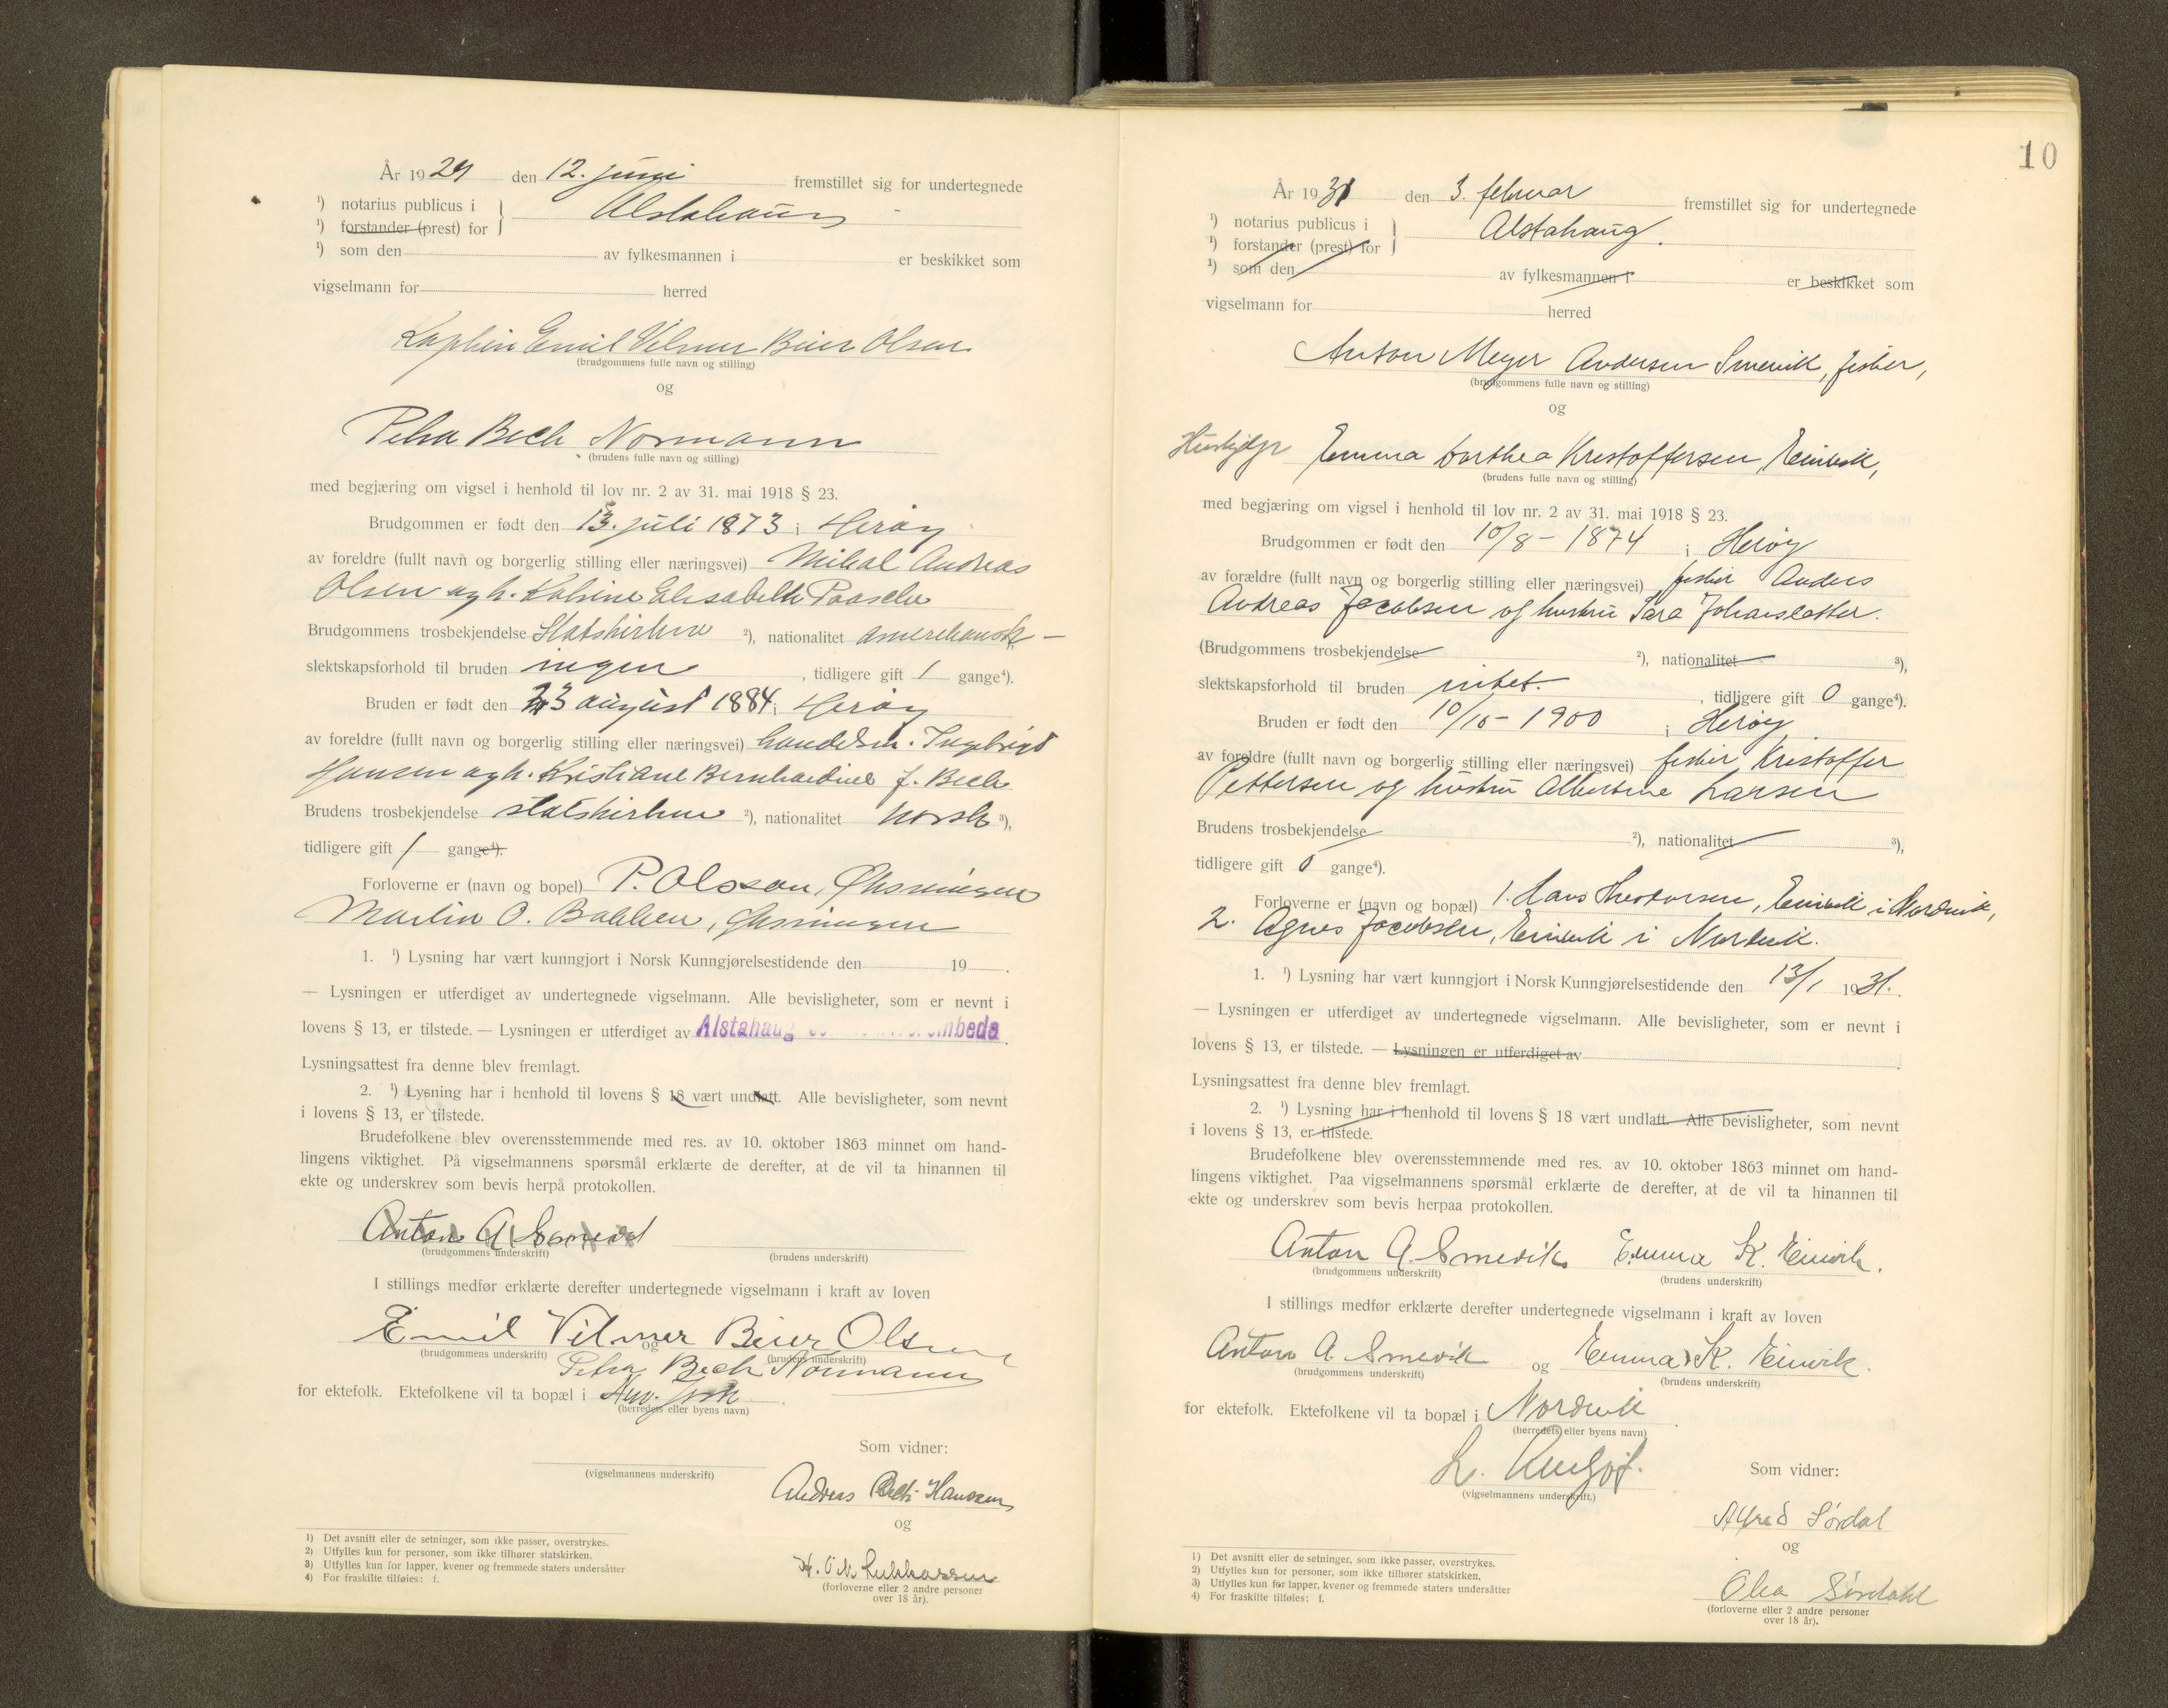 År 1929 den 12. juni fremstillet sig for undertegnede
¹) notarius publicus i
¹) forstander (prest) for
Alstahaug
¹) som den av fylkesmannen i er beskikket som
vigselmann for herred
Emil Vilmer Beier Olsen
(brudgommens fulle navn og stilling)
og
Petra Bech Normann
(brudens fulle navn og stilling)
med begjæring om vigsel i henhold til lov nr. 2 av 31. mai 1918 § 23.
Brudgommen er født den 13. juli 1873 i Herøy
av foreldre (fullt navn og borgerlig stilling eller næringsvei) Mikal Andreas
Olsen og h. Katrine Elisabeth Paasche
Brudgommens trosbekjendelse Statskirken ²), nationalitet amerikansk
slektskapsforhold til bruden ingen , tidligere gift 1 gange⁴).
Bruden er født den 23 august 1884 i Herøy
av foreldre (fullt navn og borgerlig stilling eller næringsvei) handelsm. Ingebrigt
Hansen og h. Kristiane Bernhardine f. Bech
Brudens trosbekjendelse statskirken ²), nationalitet norsk ³),
tidligere gift 1 gange⁴).
Forloverne er (navn og bopel) P. Olsson,
Martin O. Bakken,
1. ¹) Lysning har vært kunngjort i Norsk Kunngjørelsestidende den 19 .
— Lysningen er utferdiget av undertegnede vigselmann. Alle bevisligheter, som er nevnt i
lovens § 13, er tilstede. — Lysningen er utferdiget av Alstahaug
Lysningsattest fra denne blev fremlagt.
2. ¹) Lysning har i henhold til lovens § 18 vært undlatt. Alle bevisligheter, som nevnt
i lovens § 13, er tilstede.
Brudefolkene blev overensstemmende med res. av 10. oktober 1863 minnet om hand-
lingens viktighet. På vigselmannens spørsmål erklærte de derefter, at de vil ta hinannen til
ekte og underskrev som bevis herpå protokollen.
Anton A Smevik
(brudgommens underskrift) (brudens underskrift)
I stillings medfør erklærte derefter undertegnede vigselmann i kraft av loven
Emil Vilmer Beier Olsen
(brudgommens underskrift) og (brudens underskrift)
Petra Bech Normann
for ektefolk. Ektefolkene vil ta bopæl i
(herredets eller byens navn)
Som vidner:
(vigselmannens underskrift)
Anders Bech Hanssen
og
(forloverne eller 2 andre personer
over 18 år).
1) Det avsnitt eller de setninger, som ikke passer, overstrykes.
2) Utfylles kun for personer, som ikke tilhører statskirken.
3) Utfylles kun for lapper, kvener og fremmede staters undersåtter
4) For fraskilte tilføies: f.
10
År 1931 den 3. februar fremstillet sig for undertegnede
¹) notarius publicus i
¹) forstander (prest) for
Alstahaug.
¹) som den av fylkesmannen i er beskikket som
vigselmann for herred
Anton Meyer Andersen Smevik, fisker,
(brudgommens fulle navn og stilling)
og
Hushjelp Emma Dorthea Kristoffersen, Einvik,
(brudens fulle navn og stilling)
med begjæring om vigsel i henhold til lov nr. 2 av 31. mai 1918 § 23.
Brudgommen er født den 10/8 - 1874 i Herøy
av forældre (fullt navn og borgerlig stilling eller næringsvei) fisker Anders
Andreas Jacobsen og hustru Sara Johansdatter.
(Brudgommens trosbekjendelse ²), nationalitet ³),
slektskapsforhold til bruden intet. , tidligere gift 0 gange⁴).
Bruden er født den 10/10 - 1900 i Herøy
av foreldre (fullt navn og borgerlig stilling eller næringsvei) fisker Kristoffer
Pettersen og hustru Albertine Larsen
Brudens trosbekjendelse ²), nationalitet ³),
tidligere gift 0 gange⁴).
Forloverne er (navn og bopæl) 1. Hans Theodorsen, Einvik i Nordvik,
2. Agnes Jacobsen, Einvik i Nordvik.
1. ¹) Lysning har vært kunngjort i Norsk Kunngjørelsestidende den 13/1 1931.
— Lysningen er utferdiget av undertegnede vigselmann. Alle bevisligheter, som er nevnt i
lovens § 13, er tilstede. — Lysningen er utferdiget av .
Lysningsattest fra denne blev fremlagt.
2. ¹) Lysning har i henhold til lovens § 18 vært undlatt. Alle bevisligheter, som nevnt
i lovens § 13, er tilstede.
Brudefolkene blev overensstemmende med res. av 10. oktober 1863 minnet om hand-
lingens viktighet. Paa vigselmannens spørsmål erklærte de derefter, at de vil ta hinannen til
ekte og underskrev som bevis herpaa protokollen.
Anton A. Smevik Emma K. Einvik.
(brudgommens underskrift) (brudens underskrift)
I stillings medfør erklærte derefter undertegnede vigselmann i kraft av loven
Anton A. Smevik og Emma K. Einvik.
(brudgommens underskrift) (brudens underskrift)
for ektefolk. Ektefolkene vil ta bopæl i Nordvik .
(herredets eller byens navn)
(vigselmannens underskrift.)
Som vidner:
Alfred Sørdal
og
Olea Sørdahl
(forloverne eller 2 andre personer
over 18 år).
1) Det avsnitt eller de setninger, som ikke passer, overstrykes.
2) Utfylles kun for personer, som ikke tilhører statskirken.
3) Utfylles kun for lapper, kvener og fremmede staters undersåtter
4) For fraskilte tilføies: f.